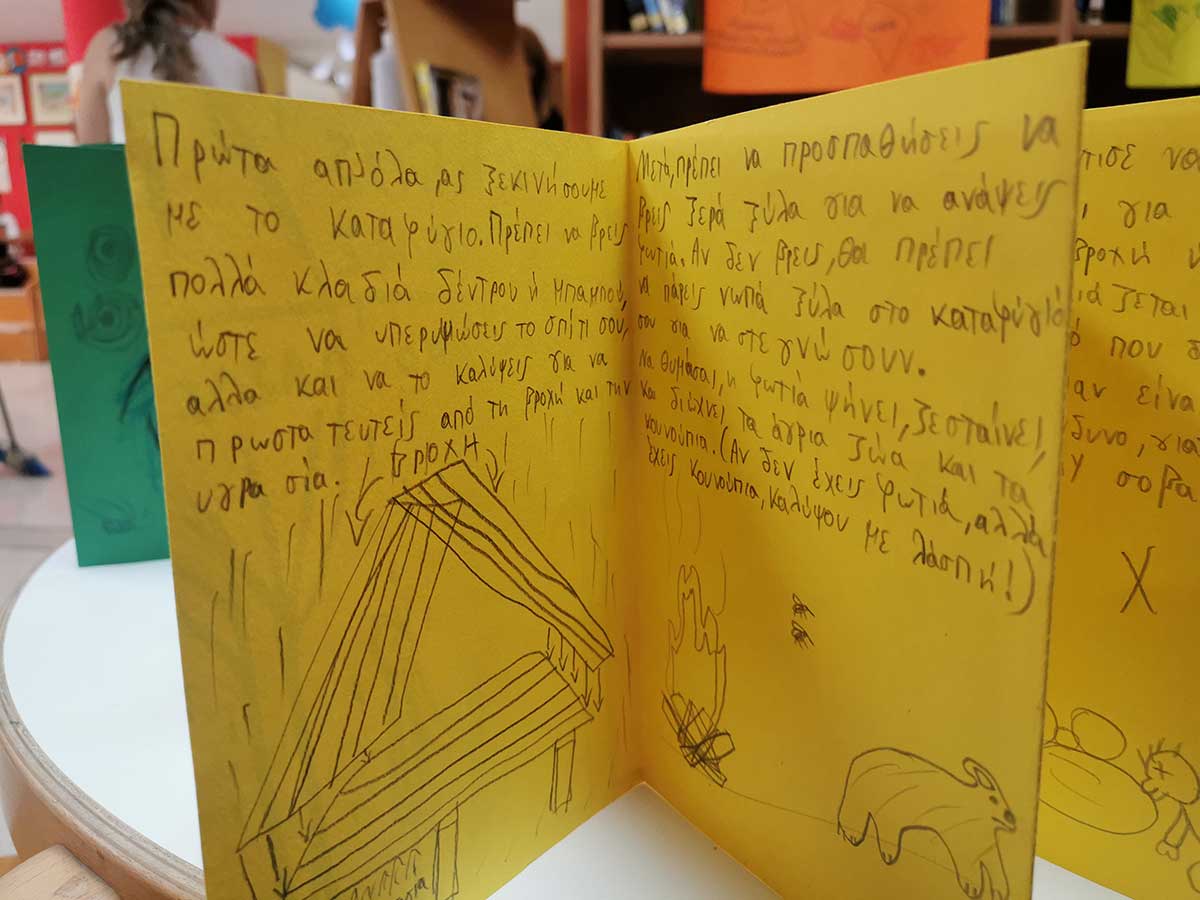 Πρώτα απ'όλα, ας ξεκινήσουμε
με το καταφύγιο. Πρέπει να βρεις
πολλά κλαδιά δέντρου ή μπαμπού,
ώστε να υπερυψώσεις το σπίτι σου,
αλλα και να το καλύψεις για να
πρωστατευτείς από τη βροχή και την
υγρασία.
ΒΡΟΧΗ
Μετά, πρέπει να προσπαθήσεις να
βρεις ξερά ξύλα για να ανάψεις
φωτιά. Αν δεν βρεις, θα πρέπει
να πάρεις νωπά ξύλα στο καταφύγιό
σου για να στεγνώσουν.
Να θυμάσαι, η φωτιά ψήνει, ζεσταίνει,
και διώχνει, τα άγρια ζώα και τα
κουνούπια. (Αν δεν έχεις φωτιά, αλλά
έχεις κουνούπια, καλύψου με λάσπη!)
να
, για
βροχή
ζεται
που
είνα
, για
σοβα
Χ